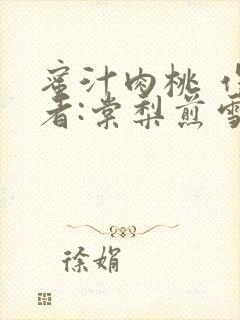 蜜汁肉桃 作
者:棠梨煎雪
徐娟